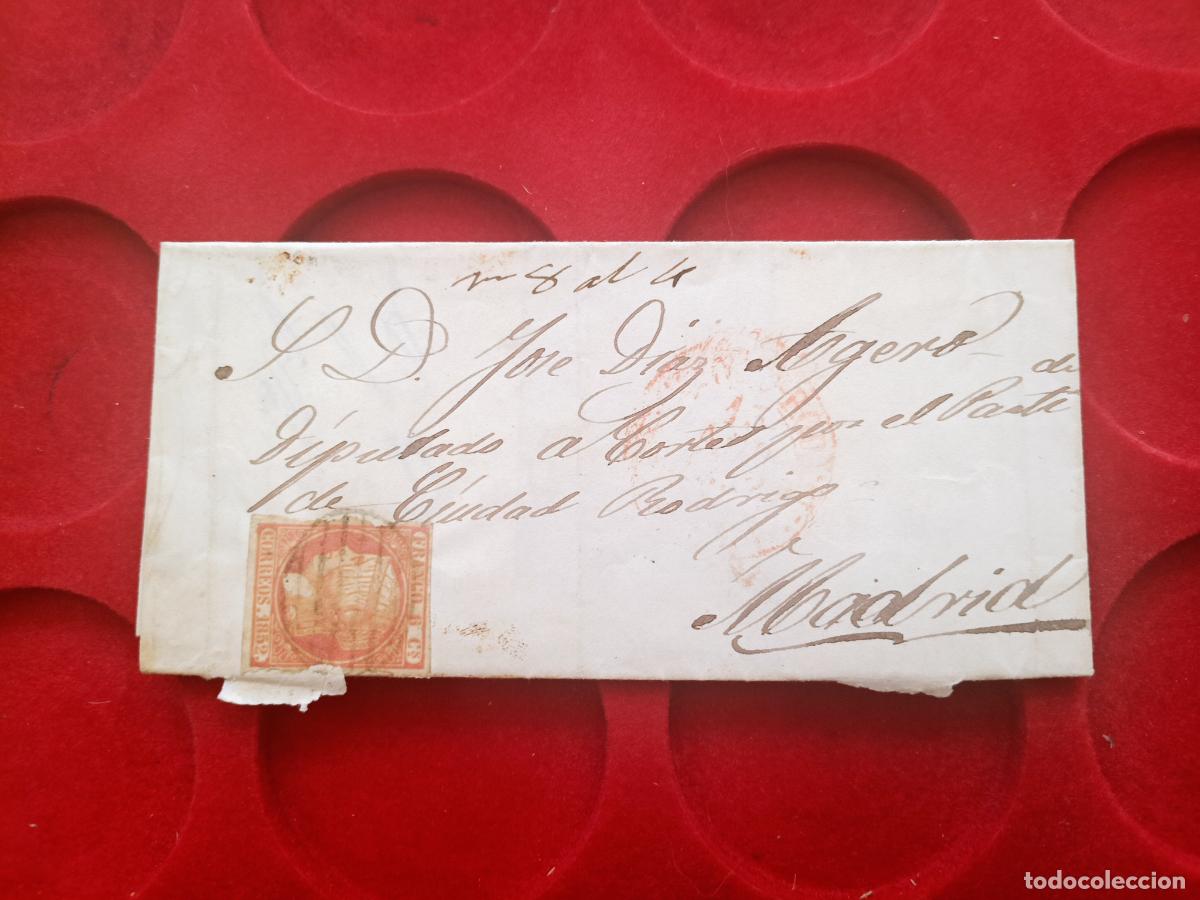 n 8 al 4
S. D. Jose Diaz Agero
Diputado a Cortes por el Parti
do
de Ciudad Rodrigo
Madrid
CORREOS. 1852.
FRANCO. 6 Cs
todocoleccion